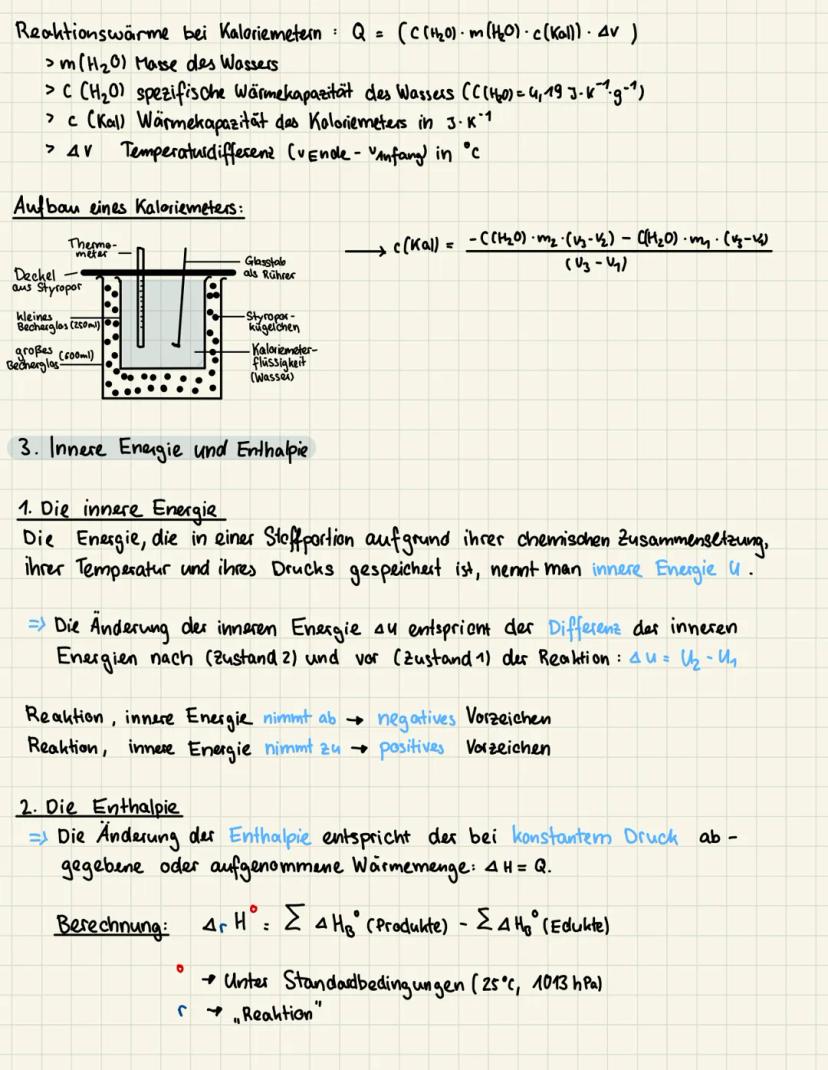 Reaktionswärme bei Kaloriemetern : Q = (C(H₂O) · m(H₂O) · c(Kal)) · Δv )
> m(H₂O) Masse des Wassers
> C (H₂O) spezifische Wärmekapazität des Wassers (C(H₂O) = 4,19 J·K⁻¹·g⁻¹)
> c (Kal) Wärmekapazität des Kaloriemeters in J·K⁻¹
> Δv Temperaturdifferenz (vEnde - vAnfang) in °C
Aufbau eines Kaloriemeters:
→ c(Kal) = -C(H₂O) · m₂ · (v₃-v₂) - C(H₂O) · m₁ · (v₃-v₁)
(v₃ - v₁)
Thermo-
meter
Deckel
aus Styropor
kleines
Becherglas (250ml)
großes (600ml)
Becherglas
Glasstab
als Rührer
Styropor-
kügelchen
Kaloriemeter-
flüssigkeit
(Wasser)
3. Innere Energie und Enthalpie
1. Die innere Energie
Die Energie, die in einer Stoffportion aufgrund ihrer chemischen Zusammensetzung,
ihrer Temperatur und ihres Drucks gespeichert ist, nennt man innere Energie U.
=> Die Änderung der inneren Energie ΔU entspricht der Differenz der inneren
Energien nach (Zustand 2) und vor (Zustand 1) der Reaktion : ΔU = U₂ - U₁
Reaktion, innere Energie nimmt ab → negatives Vorzeichen
Reaktion, innere Energie nimmt zu → positives Vorzeichen
2. Die Enthalpie
=> Die Änderung der Enthalpie entspricht der bei konstantem Druck ab-
gegebene oder aufgenommene Wärmemenge: ΔH = Q.
Berechnung: ΔrH° = Σ ΔHB° (Produkte) - Σ ΔHB° (Edukte)
° → Unter Standardbedingungen (25°C, 1013 hPa)
r → „Reaktion"